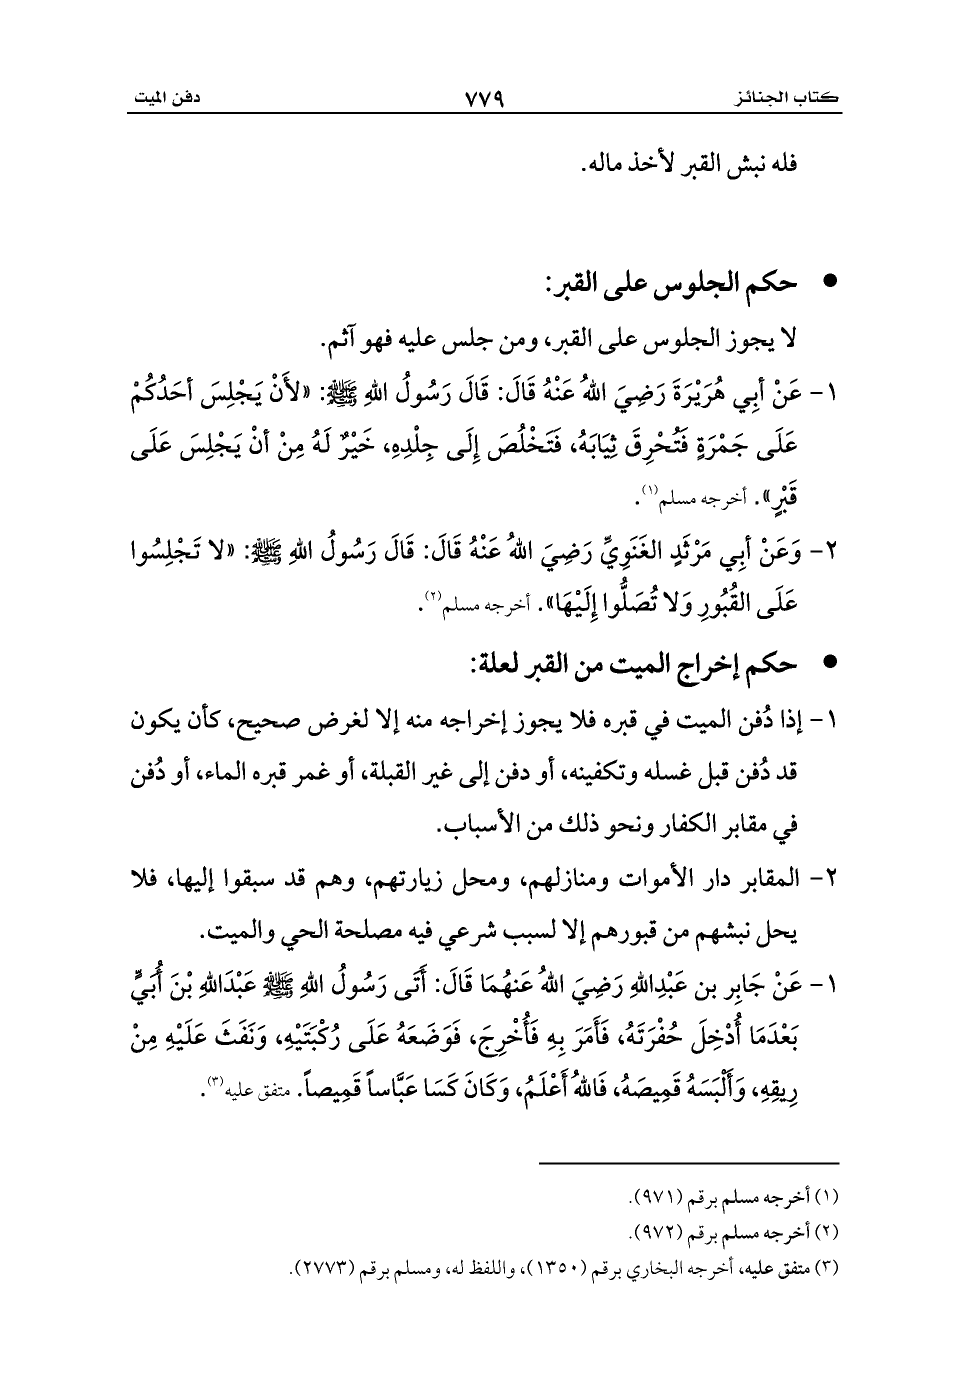 كتاب الجنائز ٧٧٩ دفن الميت
فله نبش القبر لأخذ ماله.
• حكم الجلوس على القبر:
لا يجوز الجلوس على القبر، ومن جلس عليه فهو آثم.
١- عَنْ أبِي هُرَيْرَةَ رَضِيَ اللهُ عَنْهُ قَالَ: قَالَ رَسُولُ اللهِ ﷺ: «لأَنْ يَجْلِسَ أحَدُكُمْ
عَلَى جَمْرَةٍ فَتُحْرِقَ ثِيَابَهُ، فَتَخْلُصَ إِلَى جِلْدِهِ، خَيْرٌ لَهُ مِنْ أنْ يَجْلِسَ عَلَى
قَبْرٍ». أخرجه مسلم(١).
٢- وَعَنْ أبِي مَرْثَدٍ الغَنَوِيِّ رَضِيَ اللهُ عَنْهُ قَالَ: قَالَ رَسُولُ اللهِ ﷺ: «لا تَجْلِسُوا
عَلَى القُبُورِ وَلا تُصَلُّوا إِلَيْهَا». أخرجه مسلم(٢).
• حكم إخراج الميت من القبر لعلة:
١- إذا دُفن الميت في قبره فلا يجوز إخراجه منه إلا لغرض صحيح، كأن يكون
قد دُفن قبل غسله وتكفينه، أو دفن إلى غير القبلة، أو غمر قبره الماء، أو دُفن
في مقابر الكفار ونحو ذلك من الأسباب.
٢- المقابر دار الأموات ومنازلهم، ومحل زيارتهم، وهم قد سبقوا إليها، فلا
يحل نبشهم من قبورهم إلا لسبب شرعي فيه مصلحة الحي والميت.
١- عَنْ جَابِر بن عَبْدِاللهِ رَضِيَ اللهُ عَنهُمَا قَالَ: أَتَى رَسُولُ اللهِ ﷺ عَبْدَاللهِ بْنَ أُبَيٍّ
بَعْدَمَا أُدْخِلَ حُفْرَتَهُ، فَأَمَرَ بِهِ فَأُخْرِجَ، فَوَضَعَهُ عَلَى رُكْبَتَيْهِ، وَنَفَثَ عَلَيْهِ مِنْ
رِيقِهِ، وَأَلْبَسَهُ قَمِيصَهُ، فَاللهُ أَعْلَمُ، وَكَانَ كَسَا عَبَّاساً قَمِيصاً. متفق عليه(٣).
(١) أخرجه مسلم برقم (٩٧١).
(٢) أخرجه مسلم برقم (٩٧٢).
(٣) متفق عليه، أخرجه البخاري برقم (١٣٥٠)، واللفظ له، ومسلم برقم (٢٧٧٣).